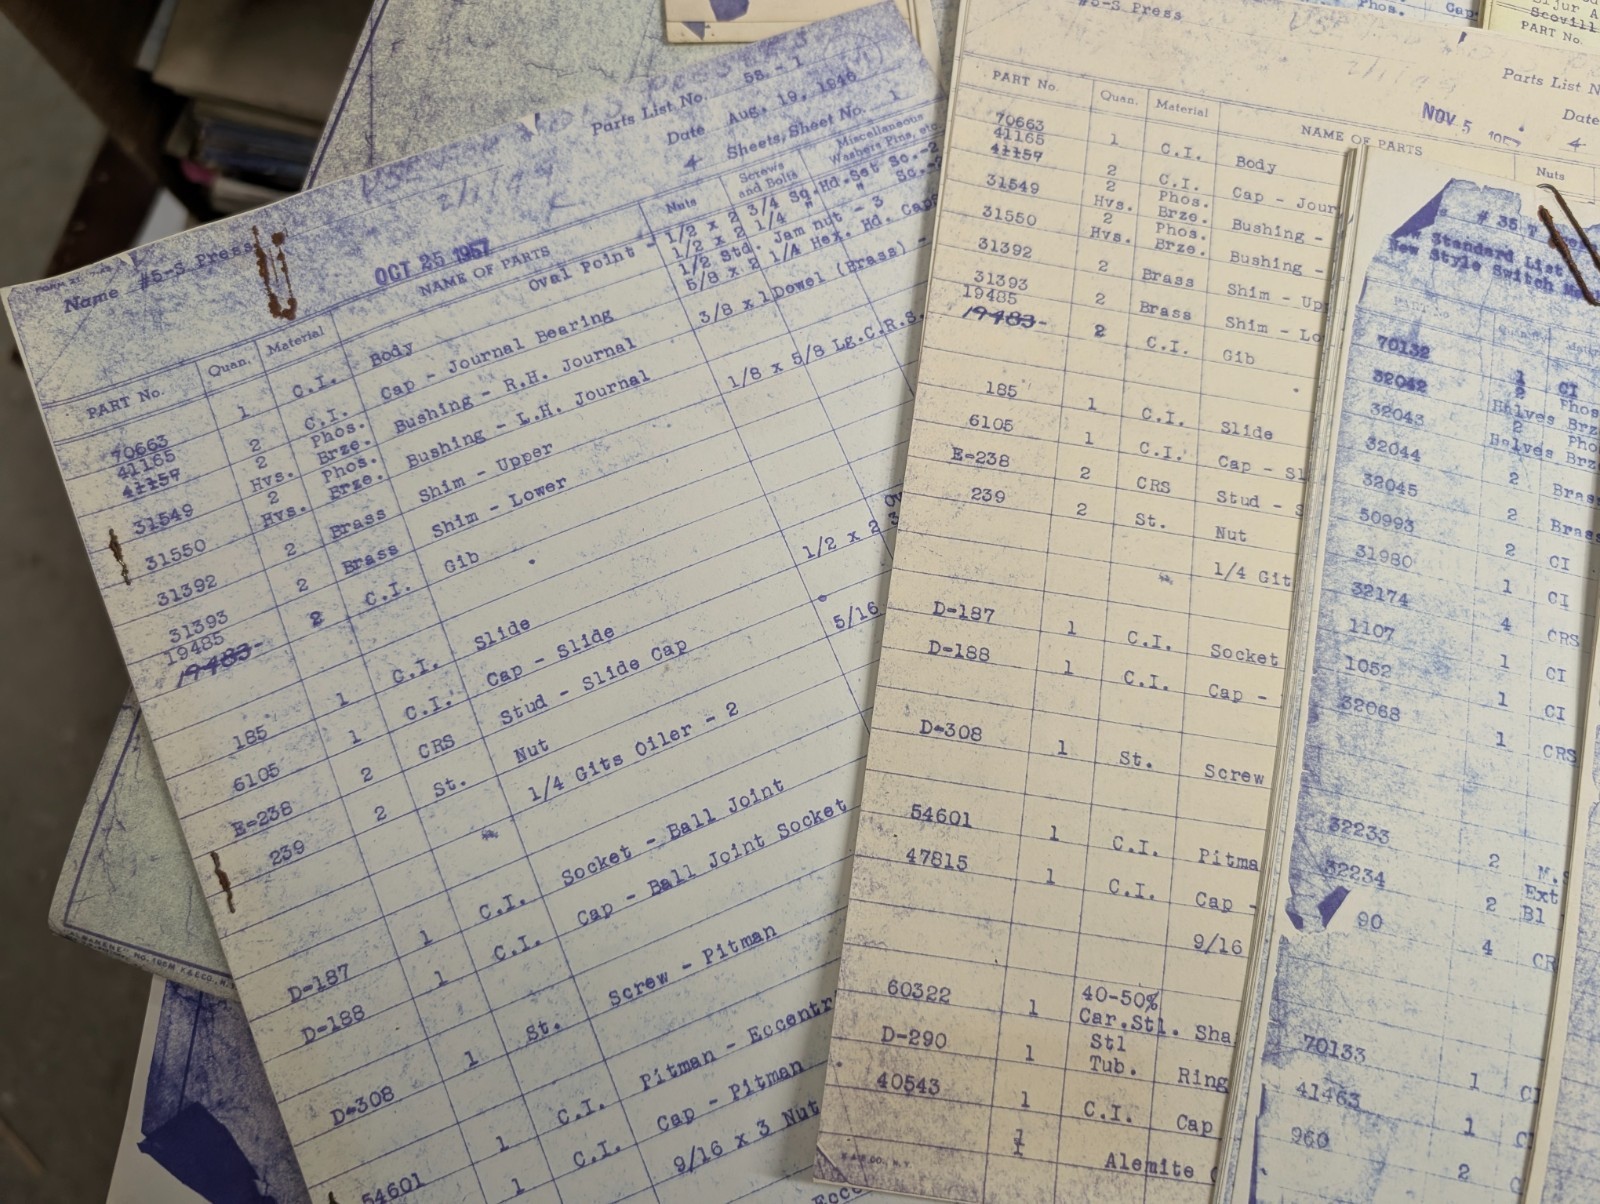 Parts List No. 5S. - 1
Date Aug. 19, 1946
4 Sheets, Sheet No. 1
Name #5-S Press
OCT 25 1957
PART No. Quan. Material NAME OF PARTS Nuts Screws and Bolts Miscellaneous Washers Pins, etc.
Oval Point - 1/2 x 2 3/4 Sq.Hd.Set Sc.-2
1/2 x 2 1/4 " " Sc.-2
1/2 Std. Jam nut - 3
70663 1 C.I. Body 5/8 x 2 1/4 Hex. Hd. Caps
41165
41157 2 C.I. Cap - Journal Bearing 3/8 x 1 Dowel (Brass) -
31549 2 Hvs. Phos. Brze. Bushing - R.H. Journal
31550 2 Hvs. Phos. Brze. Bushing - L.H. Journal 1/8 x 5/8 Lg.C.R.S.
31392 2 Brass Shim - Upper
31393 2 Brass Shim - Lower
19485
19483 2 C.I. Gib
185 1 C.I. Slide
6105 1 C.I. Cap - Slide 1/2 x 2
E-238 2 CRS Stud - Slide Cap
239 2 St. Nut 5/16
1/4 Gits Oiler - 2
D-187 1 C.I. Socket - Ball Joint
D-188 1 C.I. Cap - Ball Joint Socket
D-308 1 St. Screw - Pitman
54601 1 C.I. Pitman - Eccentr
1 C.I. Cap - Pitman
9/16 x 3 Nut
NO. 198M K&E CO., N.Y.
#5-S Press
Parts List N
NOV 5 1957
Date
4
PART No. Quan. Material NAME OF PARTS Nuts
70663 1 C.I. Body
41165
41157 2 C.I. Cap - Jour
31549 2 Hvs. Phos. Brze. Bushing -
31550 2 Hvs. Phos. Brze. Bushing -
31392 2 Brass Shim - Up
31393 2 Brass Shim - Lo
19485
19483 2 C.I. Gib
185 1 C.I. Slide
6105 1 C.I. Cap - Sl
E-238 2 CRS Stud - S
239 2 St. Nut
1/4 Git
D-187 1 C.I. Socket
D-188 1 C.I. Cap -
D-308 1 St. Screw
54601 1 C.I. Pitma
47815 1 C.I. Cap -
9/16
60322 1 40-50% Car.Stl. Sha
D-290 1 Stl Tub. Ring
40543 1 C.I. Cap
1
Alemite
K & E CO., N.Y.
Phos. Cap-
Scovill
PART No.
# 35
Standard List
New Style Switch
70132 1 CI
32042 2 Halves Phos Brz
32043 2 Halves Pho Brz
32044 2 Bras
32045 2 Brass
50993 2 CI
31980 1 CI
32174 4 CRS
1107 1 CI
1052 1 CI
32068 1 CRS
32233 2 M.S
32234 2 Ext Bl
90 4 CR
70133 1 CI
41463 1 CI
960 2 C